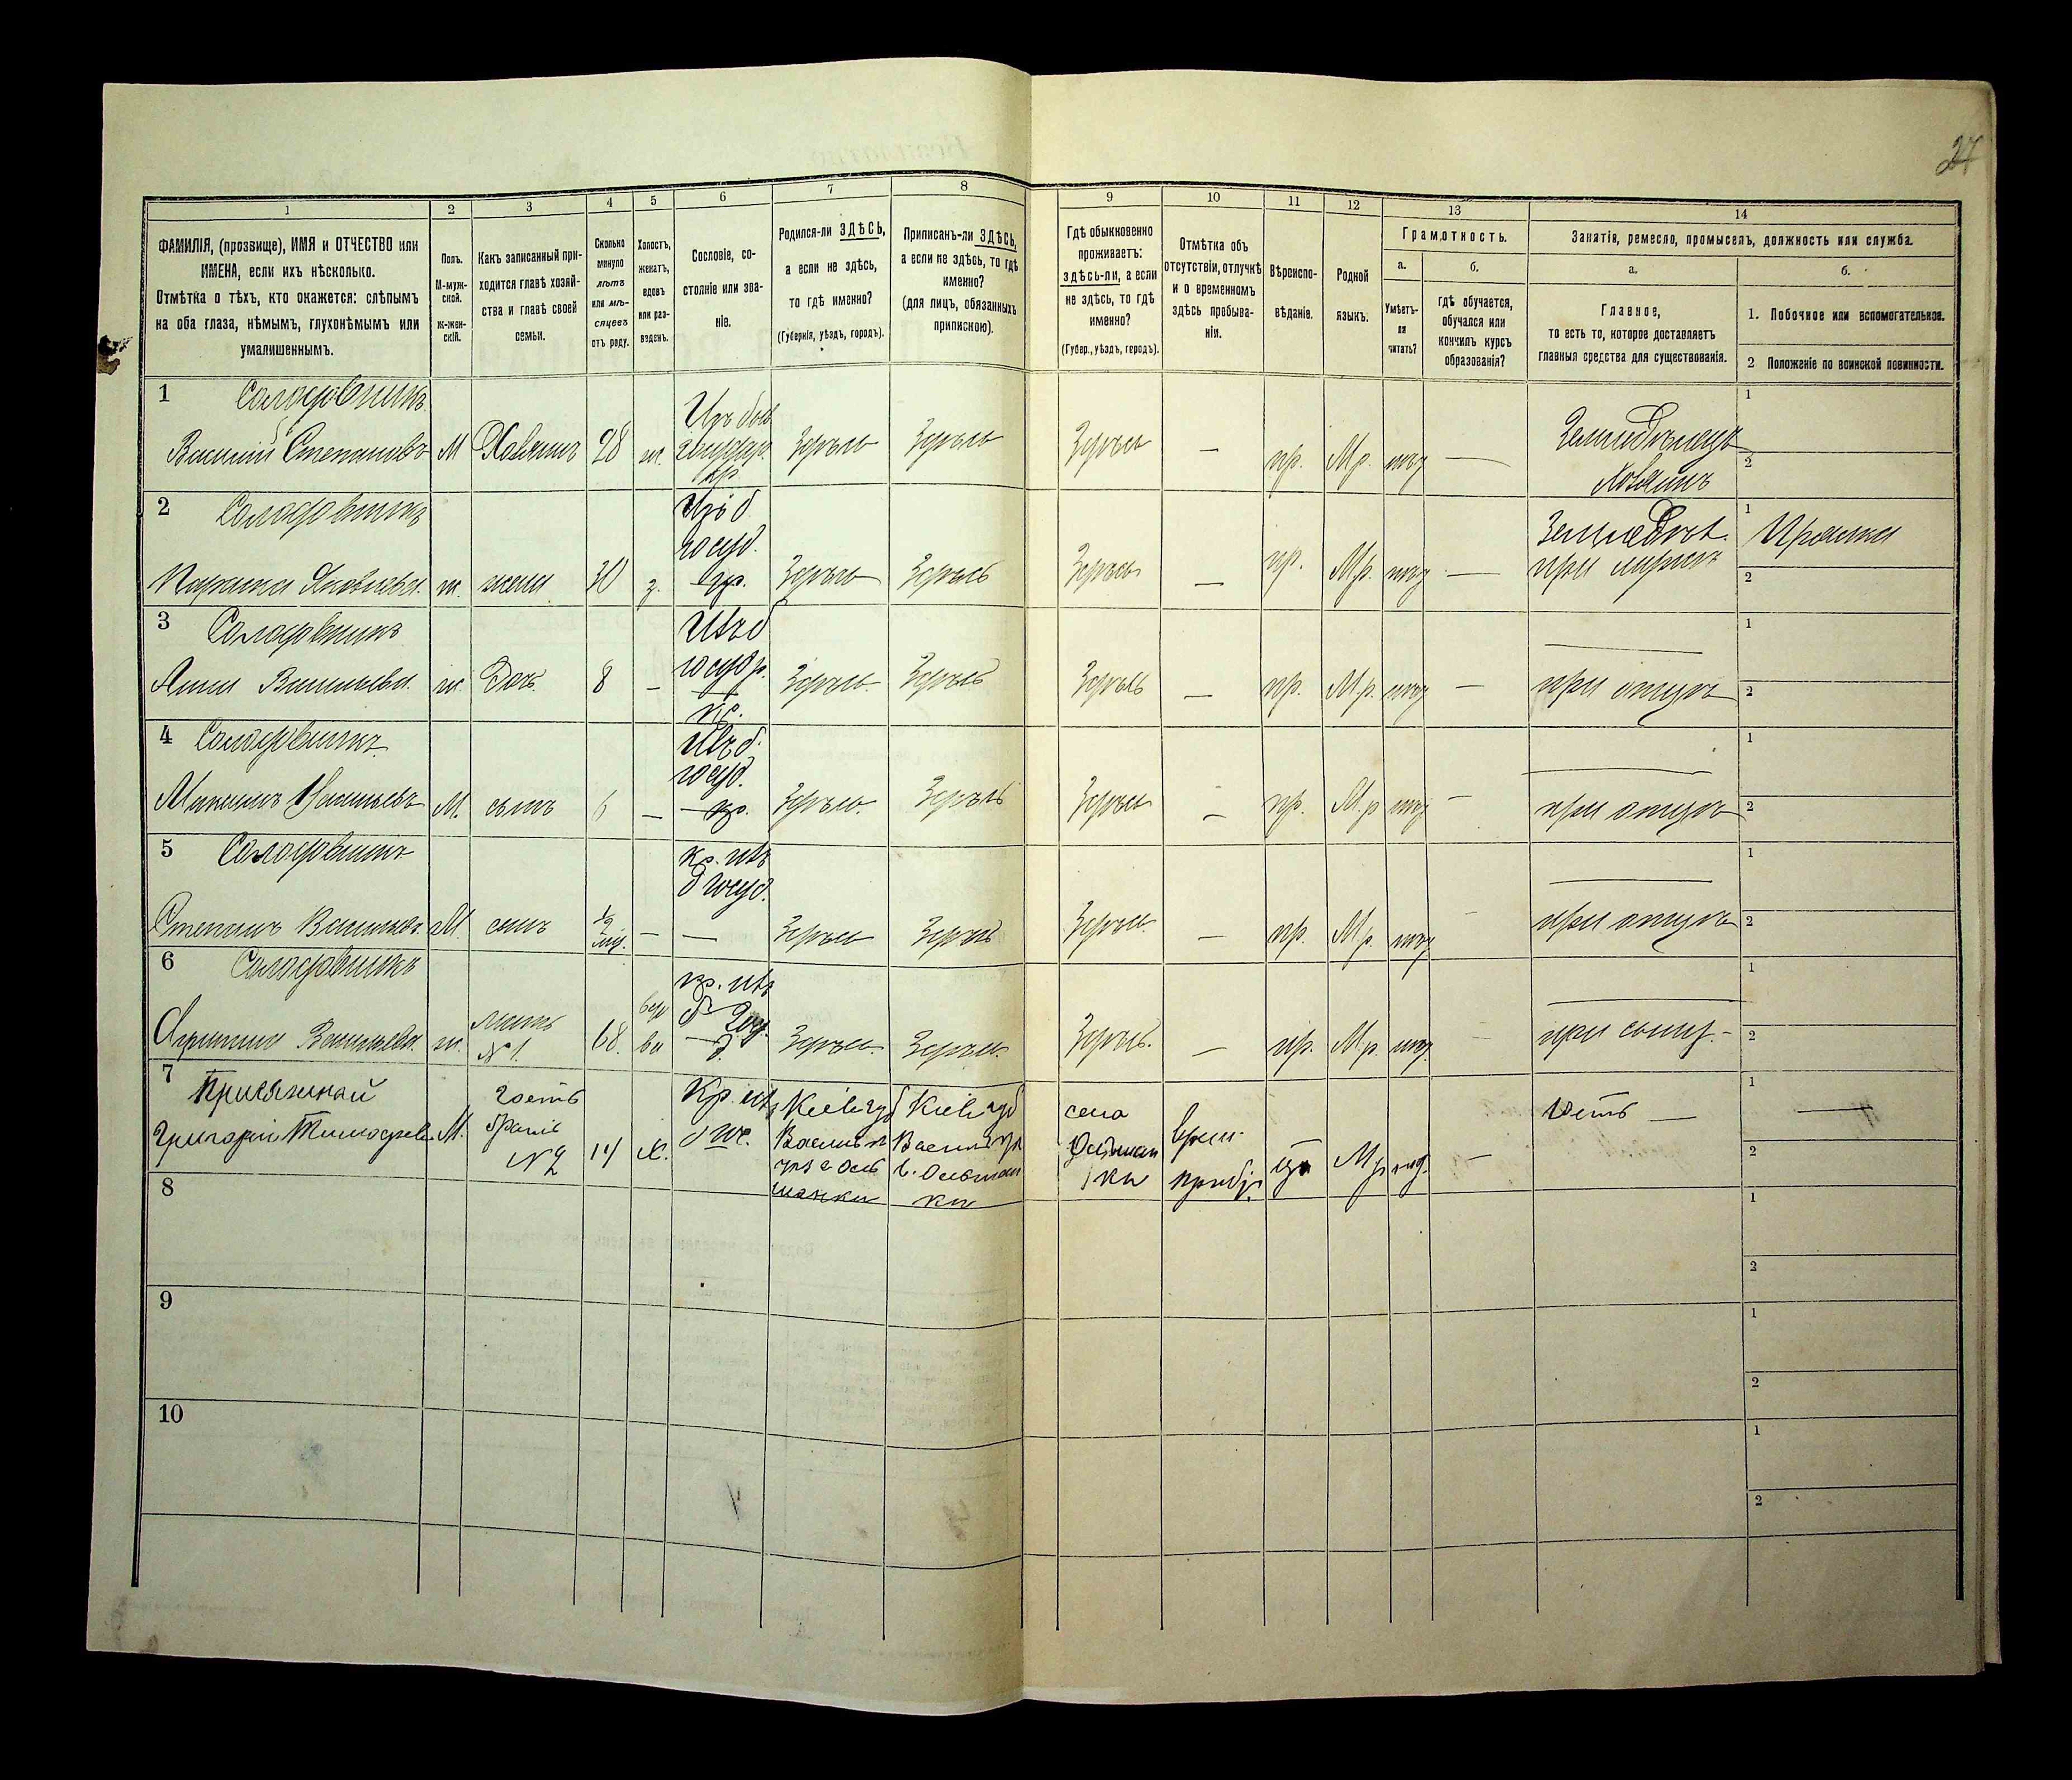 27
1
2
3
4
5
6
7
8
ФАМИЛІЯ, (прозвище), ИМЯ и ОТЧЕСТВО или
ИМЕНА, если ихъ нѣсколько.
Отмѣтка о тѣхъ, кто окажется: слѣпымъ
на оба глаза, нѣмымъ, глухонѣмымъ или
умалишеннымъ.
Полъ.
М-муж-
ской.
ж-жен-
скій.
Какъ записанный при-
ходится главѣ хозяй-
ства и главѣ своей
семьи.
Сколько
минуло
лѣтъ
или мѣ-
сяцевъ
отъ роду.
Холостъ,
женатъ,
вдовъ
или раз-
веденъ.
Сословіе, со-
стояніе или зва-
ніе.
Родился-ли ЗДѢСЬ,
а если не здѣсь,
то гдѣ именно?
(Губернія, уѣздъ, городъ).
Приписанъ-ли ЗДѢСЬ,
а если не здѣсь, то гдѣ
именно?
(для лицъ, обязанныхъ
припискою).
9
10
11
12
13
14
Гдѣ обыкновенно
проживаетъ:
здѣсь-ли, а если
не здѣсь, то гдѣ
именно?
(Губер., уѣздъ, городъ).
Отмѣтка объ
отсутствіи, отлучкѣ
и о временномъ
здѣсь пребыва-
ніи.
Вѣроиспо-
вѣданіе.
Родной
языкъ.
Грамотность.
а.
Умѣетъ-
ли
читать?
б.
гдѣ обучается,
обучался или
кончилъ курсъ
образованія?
Занятіе, ремесло, промыселъ, должность или служба.
а.
Главное,
то есть то, которое доставляетъ
главныя средства для существованія.
б.
1. Побочное или вспомогательное.
2 Положеніе по воинской повинности.
1 Солодовникъ
Василий Степановъ М Хозяинъ 28 ж. Изъ быв государ. кр Здѣсь Здѣсь Здѣсь — пр. М.р. нѣт — Земледѣлецъ хозяинъ 1 2
2 Солодовникъ
Яковлева ж. жена 30 з. Изъ б госуд. кр. Здѣсь Здѣсь Здѣсь — пр. М.р. нѣт — Землед. при мужѣ 1 Пряжа 2
3 Солодовникъ
Анна Васильева ж. дочь 8 — Изъ б госудр. кр. Здѣсь Здѣсь Здѣсь — пр. М.р. нѣт — при отцѣ 1 2
4 Солодовникъ
Максимъ Васильевъ М. сынъ 6 — Изъ б. госуд. кр. Здѣсь Здѣсь Здѣсь — пр. М.р нѣт — при отцѣ 1 2
5 Солодовникъ
Степанъ Васильев. М. сынъ — кр. изъ б госуд. — Здѣсь Здѣсь Здѣсь — пр. М.р. нѣт при отцѣ 1 2
6 Солодовникъ
Васильева ж. мать №1. 68. вдова кр. изъ б Здѣсь. Здѣсь. Здѣсь. — пр. М.р. нѣт при сынѣ 1 2
7
Григорій М. гость №2 14 х. Кр. изъ Кіев губ Кіев губ села — 1 2
8 1 2
9 1 2
10 1 2